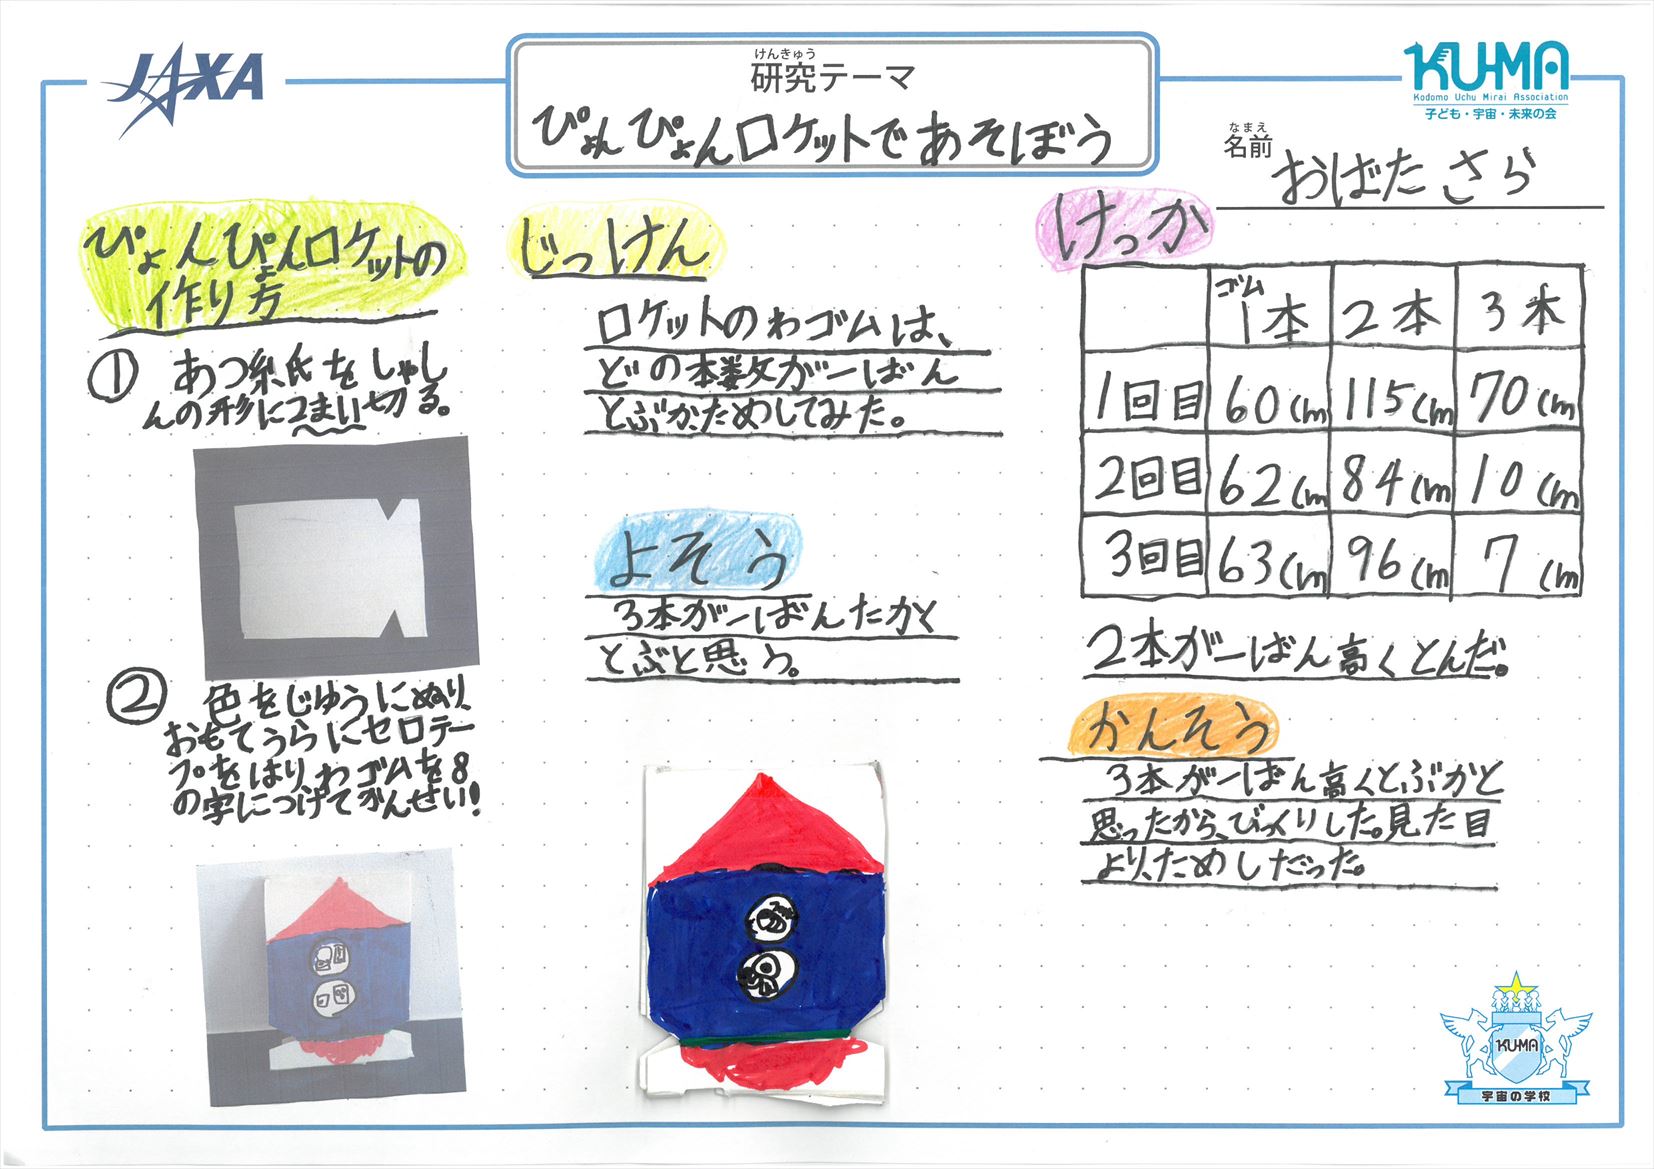 JAXA
けんきゅう
研究テーマ
ぴょんぴょんロケットであそぼう
KU-MA
Kodomo Uchu Mirai Association
子ども・宇宙・未来の会
なまえ
名前
おばた さら
ぴょんぴょんロケットの
作り方
① あつ紙をしゃし
んの形に2まい切る。
② 色をじゆうにぬり、
おもてうらにセロテー
プをはり、わゴムを8
の字につけてかんせい!
じっけん
ロケットのわゴムは、
どの本数が一ばん
とぶかためしてみた。
よそう
3本が一ばんたかく
とぶと思う。
けっか
ゴム
1本 2本 3本
1回目 60cm 115cm 70cm
2回目 62cm 84cm 10cm
3回目 63cm 96cm 7cm
2本が一ばん高くとんだ。
かんそう
3本が一ばん高くとぶかと
思ったから、びっくりした。見た目
より、ためしだった。
KU-MA
宇宙の学校